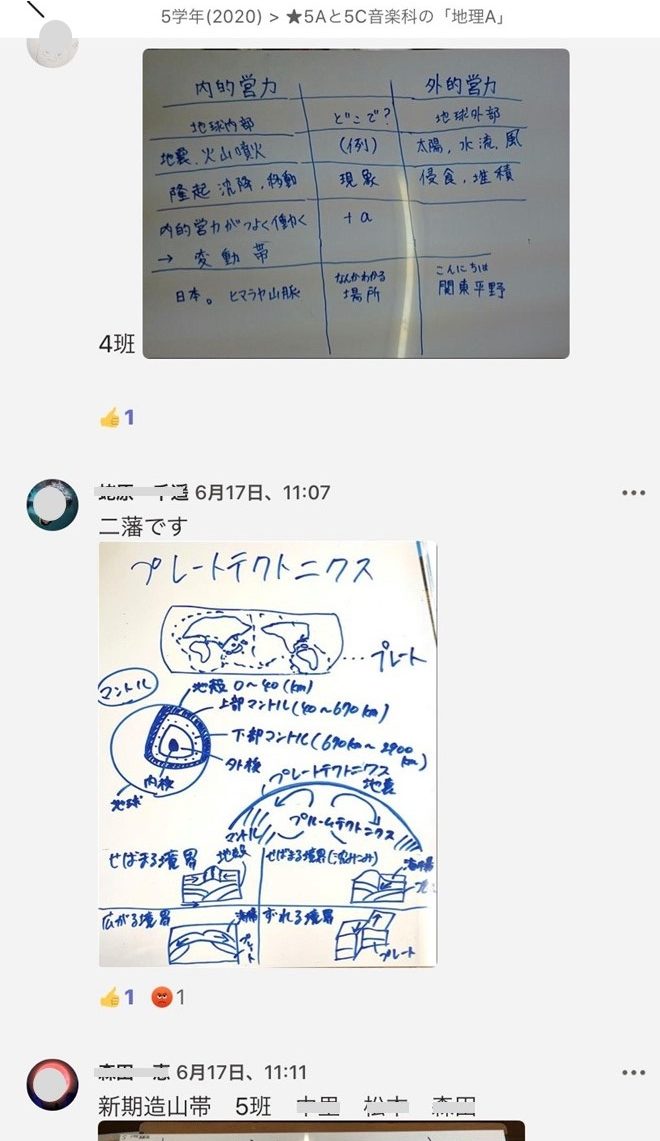 5学年(2020) > ★5Aと5C音楽科の「地理A」
内的営力 外的営力
地球内部 どこで? 地球外部
地震、火山噴火 (例) 太陽、水流、風
隆起 沈降、移動 現象 侵食、堆積
内的営力がつよく働く +a
→ 変動帯
日本。 ヒマラヤ山脈 なんかわかる 場所 こんにちは 関東平野
4班
👍1
6月17日、11:07
二藩です
プレートテクトニクス
...プレート
マントル
地殻 0~40(km)
上部マントル(40~670km)
下部マントル(670km~2900km)
外核
内核
地球
プレートテクトニクス
地震
マントル プルームテクトニクス
せばまる境界 地殻
せばまる境界
広がる境界 海嶺
プレート
ずれる境界
プレート
👍1 😡1
6月17日、11:11
新期造山帯 5班